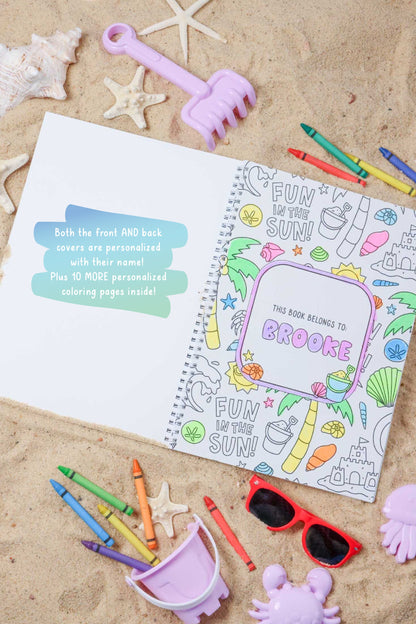 Both the front AND back
covers are personalized
with their name!
Plus 10 MORE personalized
coloring pages inside!
FUN
IN THE
SUN!
THIS BOOK BELONGS TO:
BROOKE
FUN
IN THE
SUN!